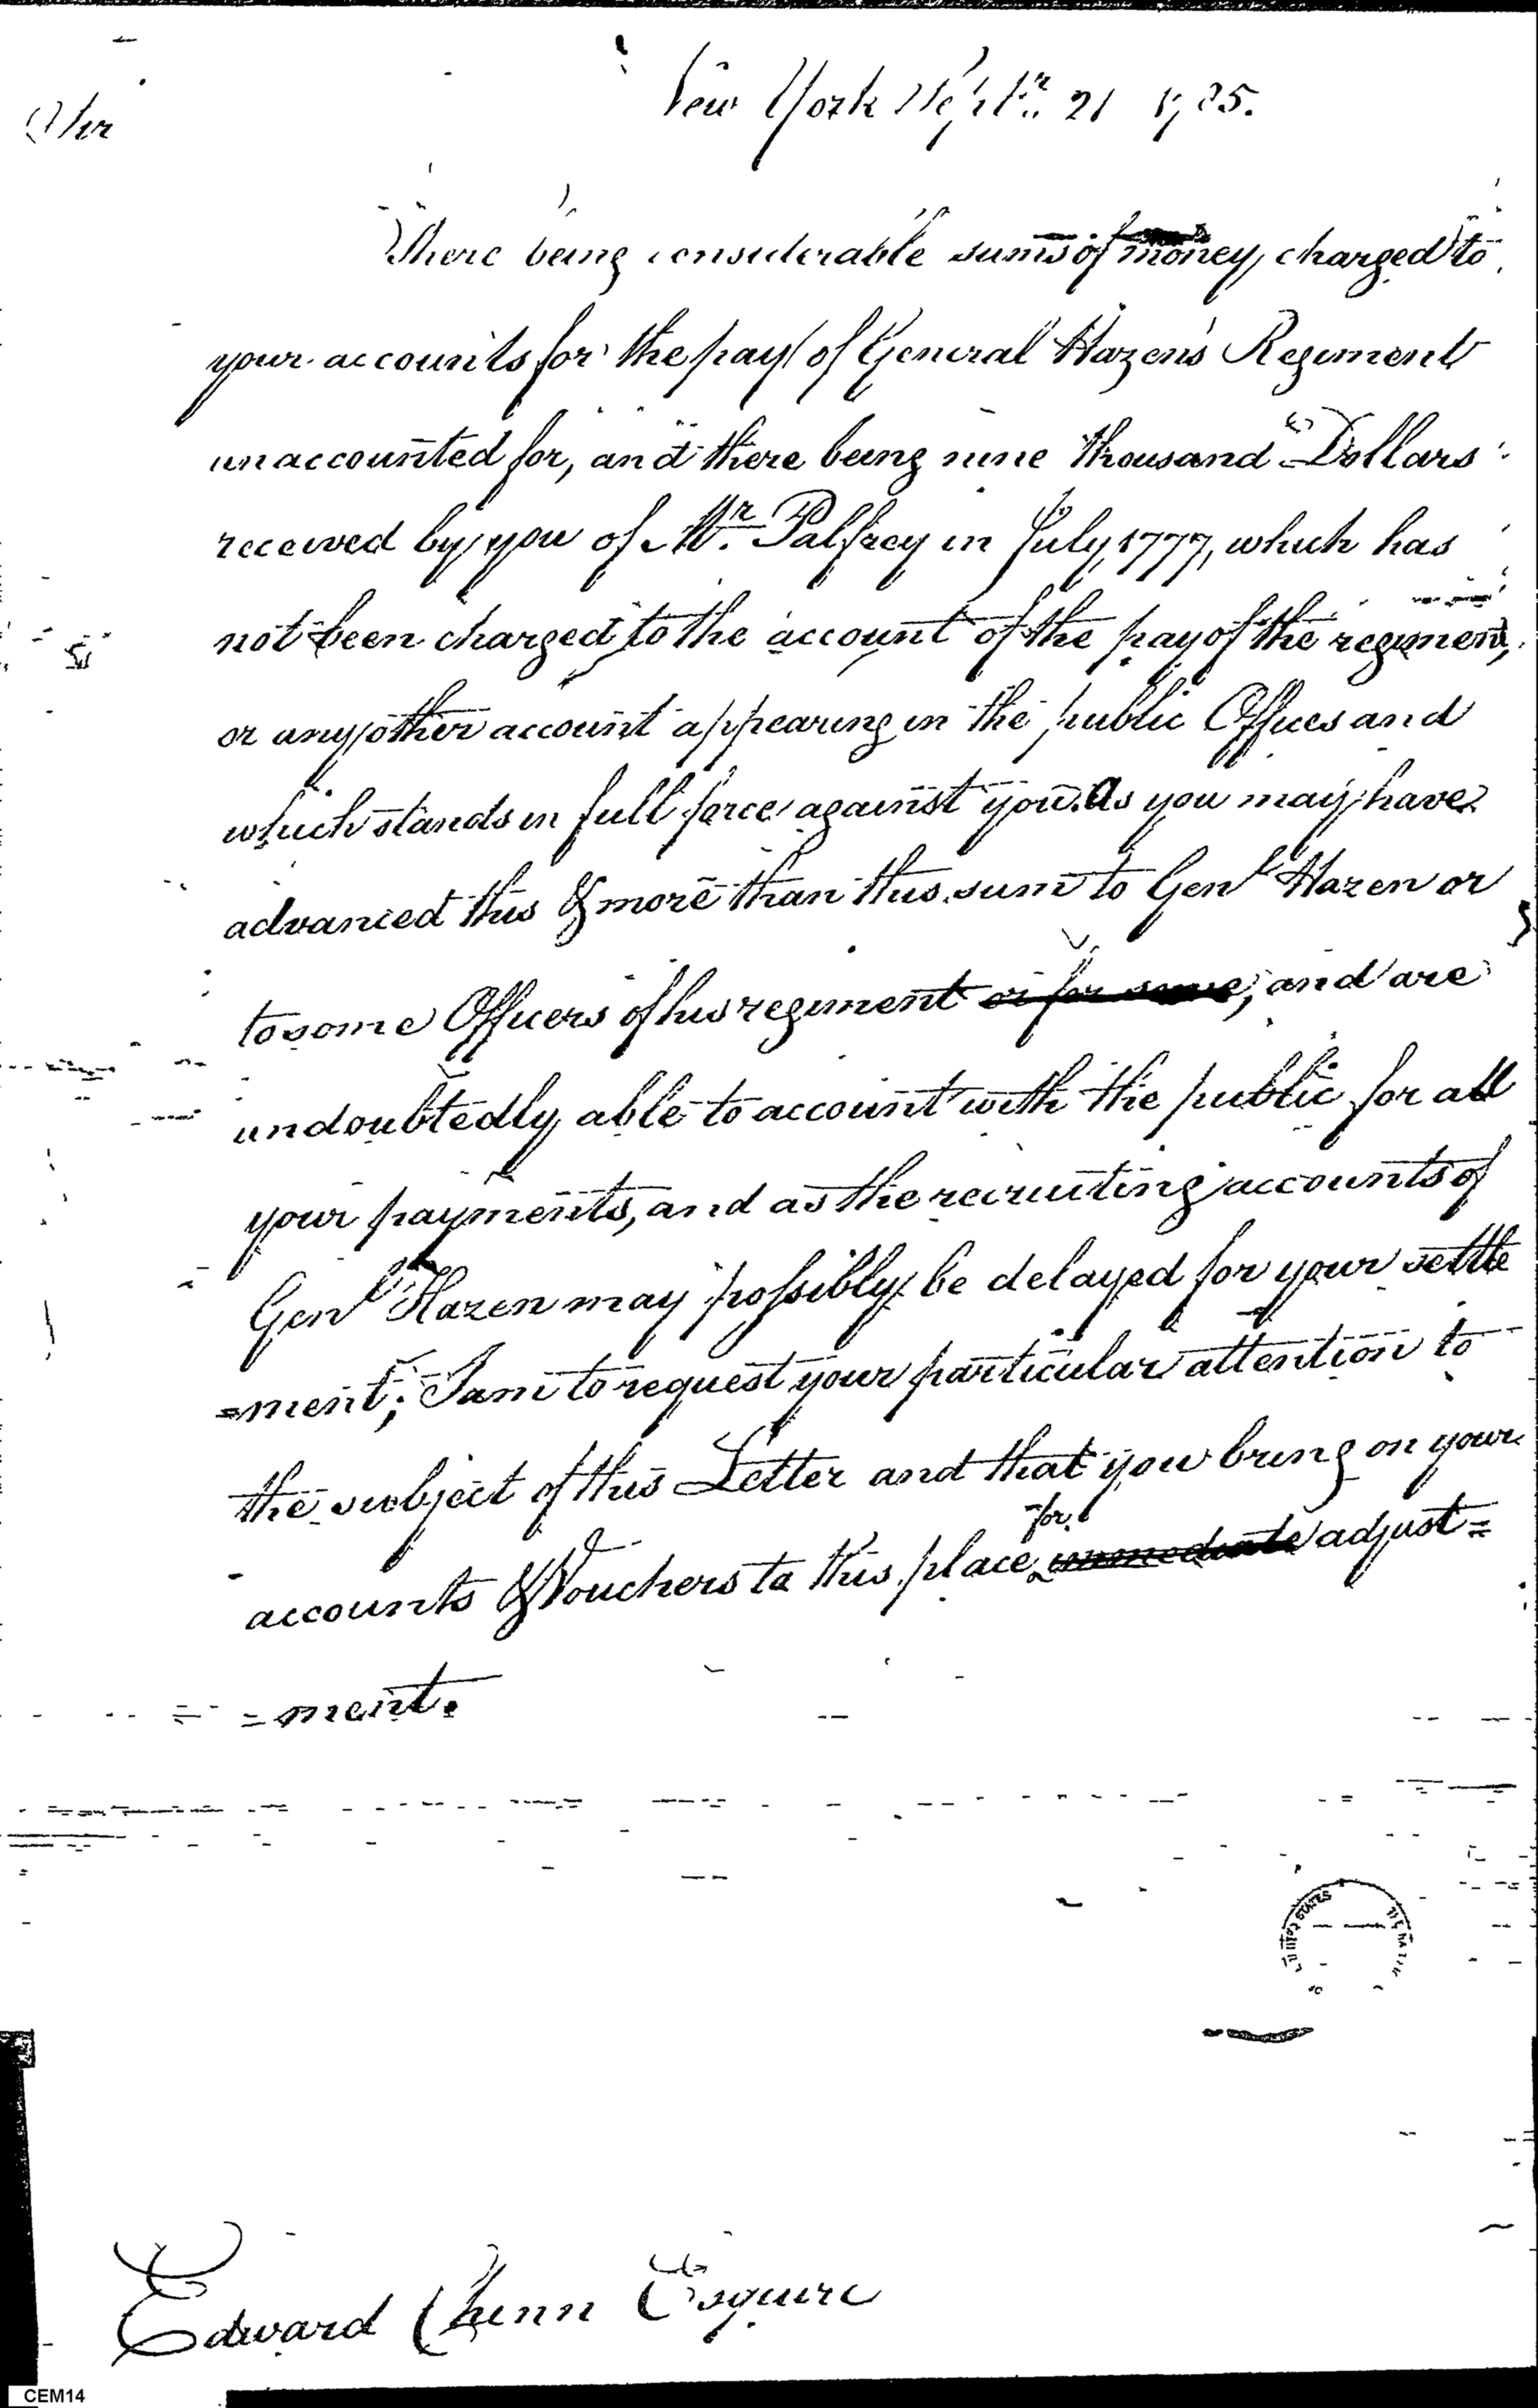 New York Septr. 21 1785.
Sir
There being considerable sums of money charged to
your accounts for the pay of General Hazen's Regiment
unaccounted for, and there being nine thousand Dollars
received by you of Mr. Palfrey in July, 1777, which has
not been charged to the account of the pay of the regiment,
or any other account appearing in the public Offices and
which stands in full force against you. As you may have
advanced this & more than this sum to Genl Hazen or
to some Officers of his regiment or for some, and are
undoubtedly able to account with the public for all
your payments, and as the recruiting accounts of
Genl Hazen may possibly be delayed for your settle
=ment; I am to request your particular attention to
the subject of this Letter and that you bring on your
for
accounts & Vouchers to this place immediate adjust=
=ment.
UNITED STATES
Edward Chinn Esquire
CEM14